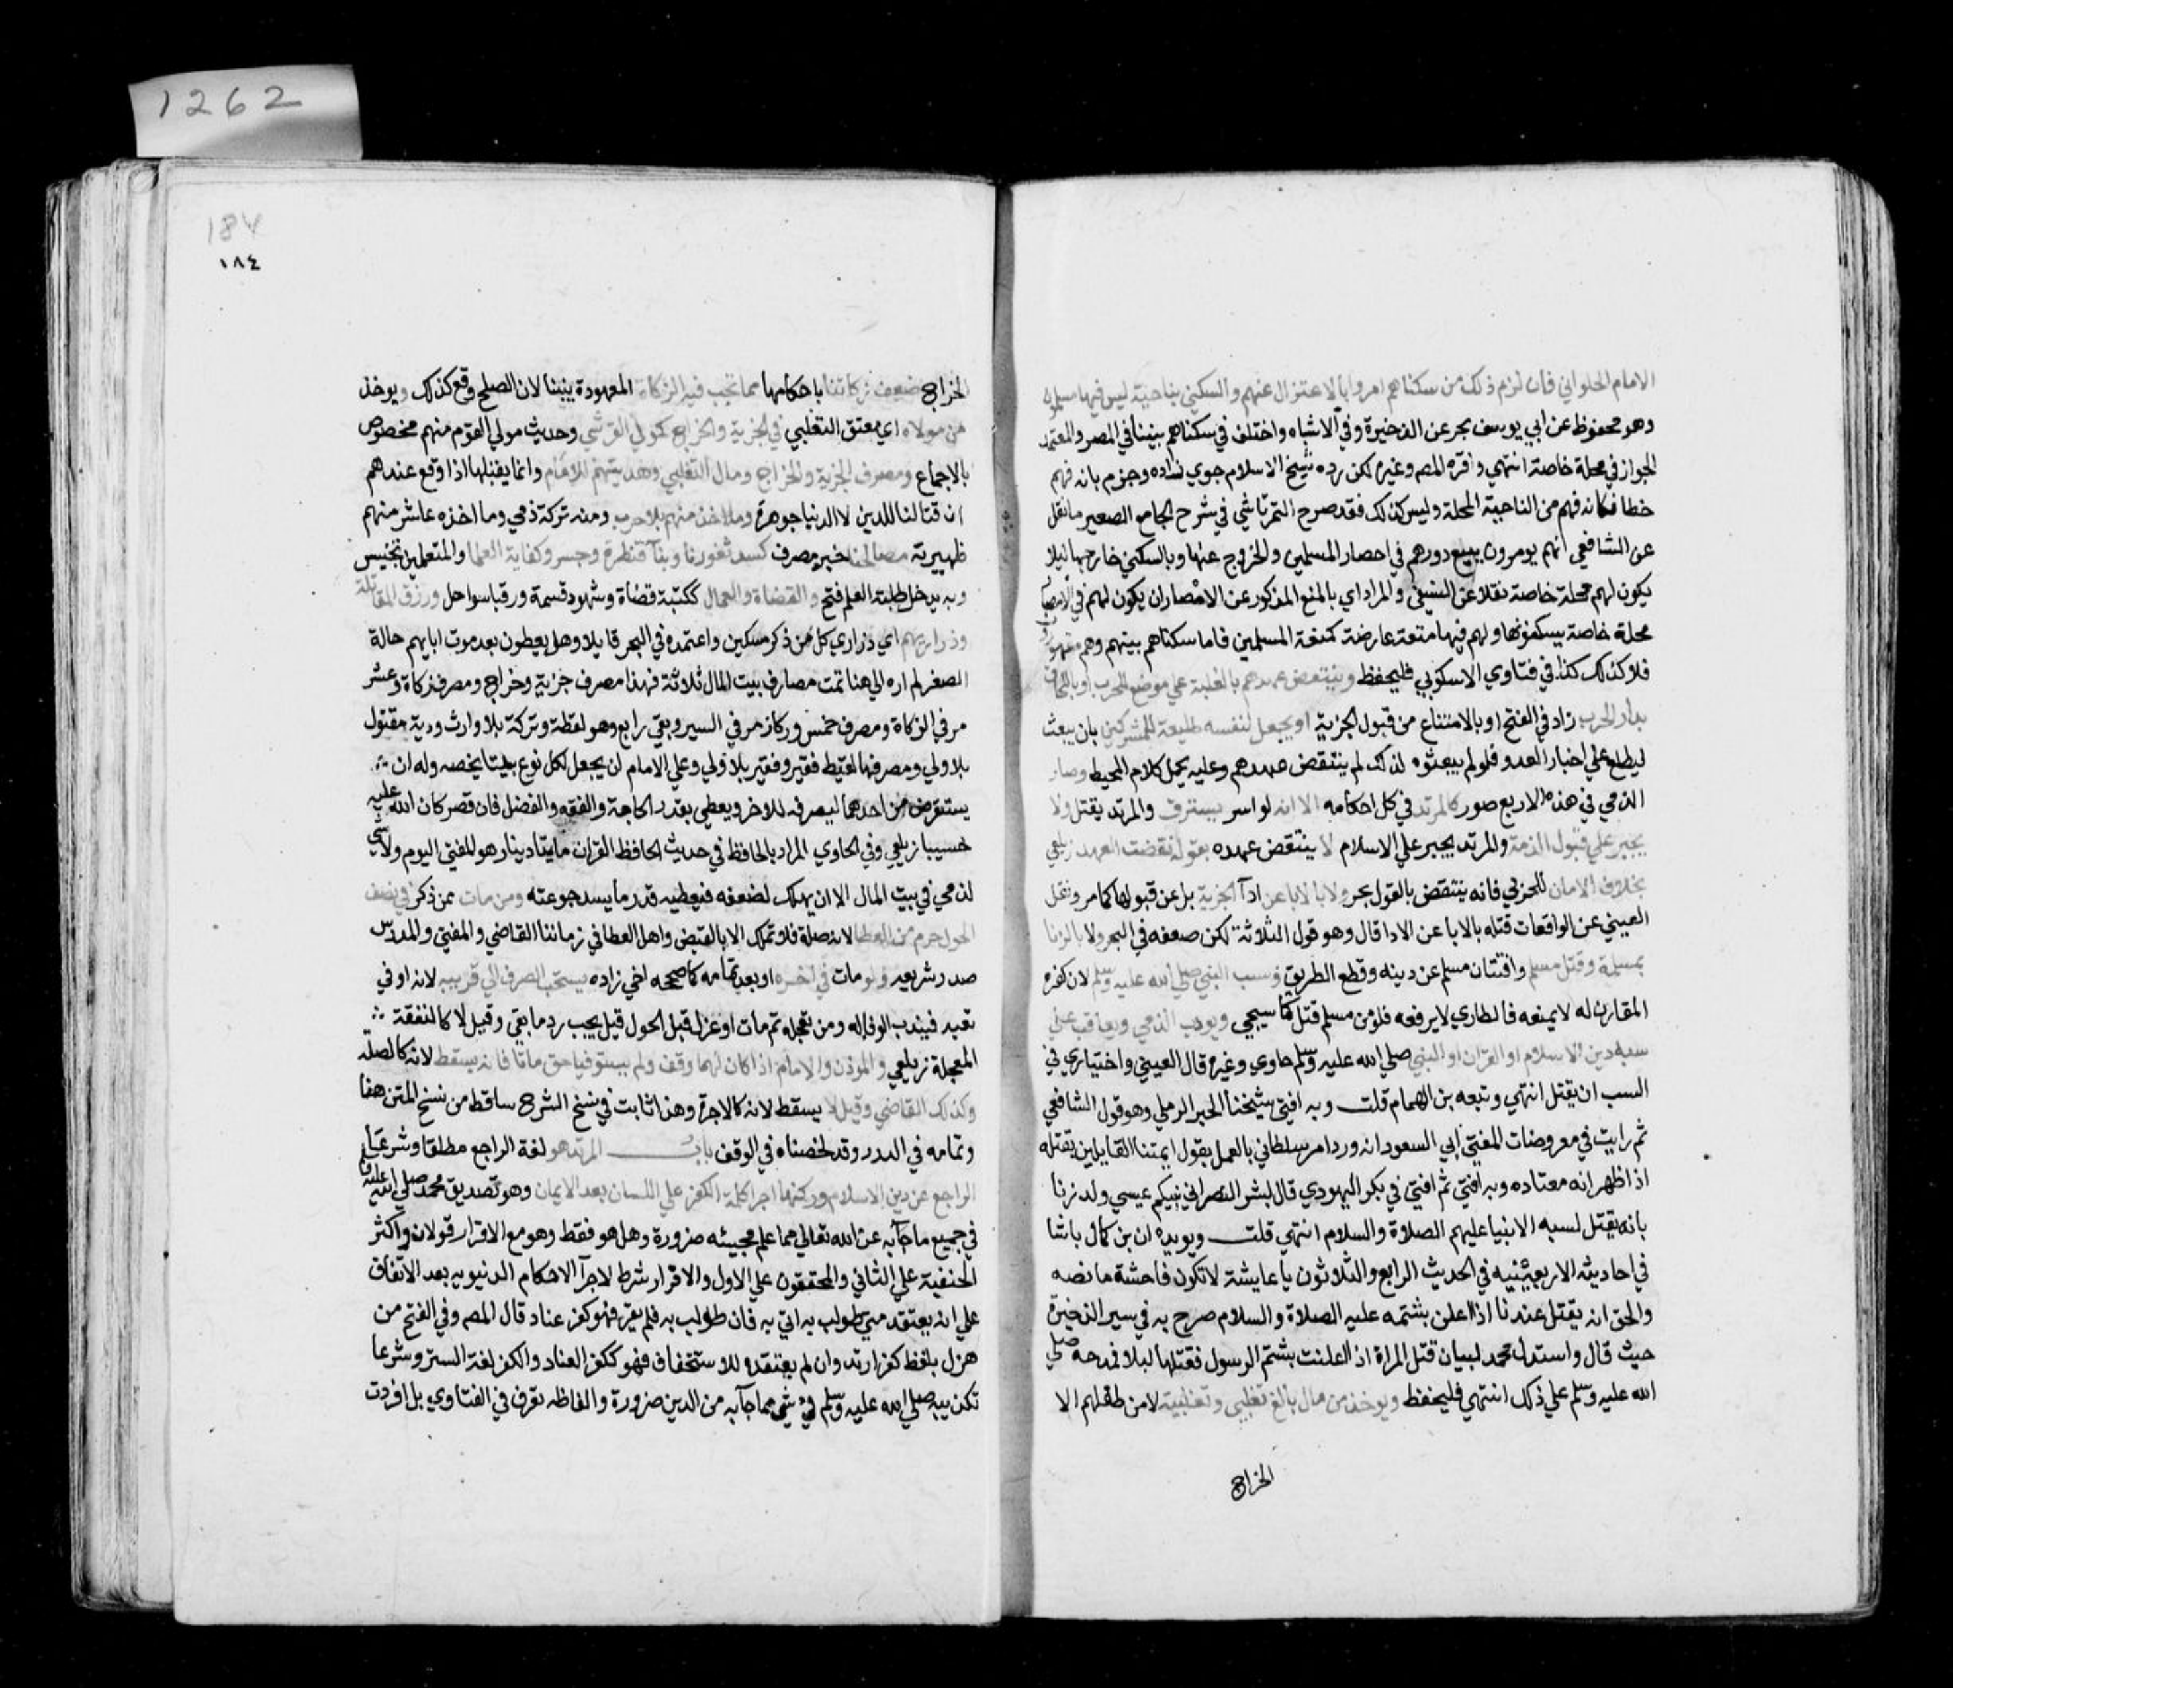 1262
الامام الحلواني فان لزم ذلك من سكناهم امروا بالاعتزال عنهم والسكني بناحية ليس فيها مسلمون
وهو محفوظ عن ابي يوسف بحر عن الذخيرة وفي الاشباه واختلف في سكناهم بيننا في المصر والمعتمد
الجواز في محلة خاصة انتهي واقره المص وغيره لكن رده شيخ الاسلام جوي زاده وجزم بانه فهم
خطا فكانه فهم من الناحية المحلة وليس كذلك فقد صرح التمرتاشي في شرح الجامع الصغير ما نقل
عن الشافعي انهم يومرون ببيع دورهم في احصار المسلمين والخروج عنها وبالسكني خارجها ليلا
يكون لهم محلة خاصة نقلا عن النسفي والمراد اي بالمنع المذكور عن الامصار ان يكون لهم في الامصار
محلة خاصة يسكنونها ولهم فيها منعة عارضة كمنعة المسلمين فاما سكناهم بينهم وهم مقهورون
فلا كذلك كذا في فتاوي الاسكوبي فليحفظ وينتقض عهدهم بالغلبة علي موضع للحرب او باللحاق
بدار الحرب زاد في الفتح او بالامتناع من قبول الجزية او يجعل لنفسه طليعة للمشركين بان يبعث
ليطلع علي اخبار العدو فلو لم يبعثوه لذلك لم ينتقض عهدهم وعليه يحمل كلام المحيط وصار
الذمي في هذه الاربع صور كالمرتد في كل احكامه الا انه لو اسر يسترق والمرتد يقتل ولا
يجبر علي قبول الذمة والمرتد يجبر علي الاسلام لا ينتقض عهده بقوله نقضت العهد زيلعي
بخلاف الامان للحربي فانه ينتقض بالقول بحر ولا بالابا عن ادآ الجزية بل عن قبولها كما مر ونقل
العيني عن الواقعات قتله بالابا عن الادا قال وهو قول الثلاثة لكن ضعفه في البحر ولا بالزنا
بمسلمة وقتل مسلم وافتتان مسلم عن دينه وقطع الطريق وسب النبي صلي الله عليه وسلم لان كفره
المقارن له لا يمنعه فالطاري لا يرفعه فلو من مسلم قتل كما سيجي ويودب الذمي ويعاقب علي
سبه دين الاسلام او القران او النبي صلي الله عليه وسلم حاوي وغيره قال العيني واختياري في
السب ان يقتل انتهي وتبعه بن الهمام قلت وبه افتي شيخنا الخير الرملي وهو قول الشافعي
ثم رايت في معروضات المفتي ابي السعود انه ورد امر سلطاني بالعمل بقول ايمتنا القايلين بقتله
اذا ظهر انه معتاده وبه افتي ثم افتي في بكر اليهودي قال لبشر النصراني نبيكم عيسي ولد زنا
بانه يقتل لسبه الانبيا عليهم الصلاة والسلام انتهي قلت ويويده ان بن كمال باشا
في احاديثه الاربعينيه في الحديث الرابع والثلاثون يا عايشة لا تكون فاحشة ما نصه
والحق انه يقتل عندنا اذا اعلن بشتمه عليه الصلاة والسلام صرح به في سير الذخيرة
حيث قال واستدل محمد لبيان قتل المراة اذا اعلنت بشتم الرسول فقتلها ليلا فمدحه صلي
الله عليه وسلم علي ذلك انتهي فليحفظ ويوخذ من مال بالغ تغلبي وتغلبية لا من طفلهم الا
الخراج
184
١٨٤
الخراج ضعف زكاتنا باحكامها مما تجب فيه الزكاة المعهودة بيننا لان الصلح وقع كذلك ويوخذ
من مولاه اي معتق التغلبي في الجزية والخراج كمولي القرشي وحديث مولي القوم منهم مخصوص
بالاجماع ومصرف الجزية والخراج ومال التغلبي وهديتهم للامام وانما يقبلها اذا وقع عندهم
ان قتالنا للدين لا الدنيا جوهرة وما اخذ منهم بلا حرب ومنه تركة ذمي وما اخذه عاشر منهم
ظهيرية مصالحنا خبر مصرف كسد ثغورنا وبنآ قنطرة وجسر وكفاية العلما والمتعلمين تجنيس
وبه يدخل طلبة العلم فتح والقضاة والعمال ككتبة قضاة وشهود قسمة ورقبا سواحل ورزق المقاتلة
وذراريهم اي ذراري كل من ذكر مسكين واعتمده في البحر قايلا وهل يعطون بعد موت ابايهم حالة
الصغر لم اره الي هنا تمت مصارف بيت المال ثلاثة فهذا مصرف جزية وخراج ومصرف زكاة وعشر
مر في الزكاة ومصرف خمس وركاز مر في السير وبقي رابع وهو لقطة وتركة بلا وارث ودية مقتول
بلا ولي ومصرفها لقيط فقير وفقير بلا ولي وعلي الامام ان يجعل لكل نوع بيتا يخصه وله ان
يستقرض من احدهما ليصرفه للاخر ويعطي بقدر الحاجة والفقه والفضل فان قصر كان الله عليه
حسيبا زيلعي وفي الحاوي المراد بالحافظ في حديث الحافظ القران مايتا دينار هو المفتي اليوم ولا شي
لذمي في بيت المال الا ان يهلك لضعفه فيعطيه قدر ما يسد جوعته ومن مات ممن ذكر في نصف
الحول حرم من العطا لانه صلة فلا تملك الا بالقبض واهل العطا في زماننا القاضي والمفتي والمدرس
صدر شريعه ولو مات في اخره او بعد تمامه كما صححه اخي زاده يستحب الصرف الي قريبه لانه اوفي
تعبه فيندب الوفا له ومن تعجله ثم مات او عزل قبل الحول قيل يجب رد ما بقي وقيل لا كالنفقة
المعجلة زيلعي والموذن والامام اذا كان لهما وقف ولم يستوفيا حتي ماتا فانه يسقط لانه كالصله
وكذلك القاضي وقيل لا يسقط لانه كالاجرة وهذا ثابت في نسخ الشرح ساقط من نسخ المتن هنا
وتمامه في الدرر وقد لخصناه في الوقف باب المرتد هو لغة الراجع مطلقا وشرعا
الراجع عن دين الاسلام وركنها اجرا كلمة الكفر علي اللسان بعد الايمان وهو تصديق محمد صلي الله عليه
في جميع ما جآ به عن الله تعالي مما علم مجيئه ضرورة وهل هو فقط وهو مع الاقرار قولان واكثر
الحنفية علي الثاني والمحققون علي الاول والاقرار شرط لاجرآ الاحكام الدنيويه بعد الاتفاق
علي انه يعتقد متي طولب به اتي به فان طولب به فلم يقر فهو كفر عناد قال المص وفي الفتح من
هزل بلفظ كفر ارتد وان لم يعتقده للاستخفاف فهو ككفر العناد والكفر لغة الستر وشرعا
تكذيبه صلي الله عليه وسلم في شي مما جآ به من الدين ضرورة والفاظه تعرف في الفتاوي بل افردت